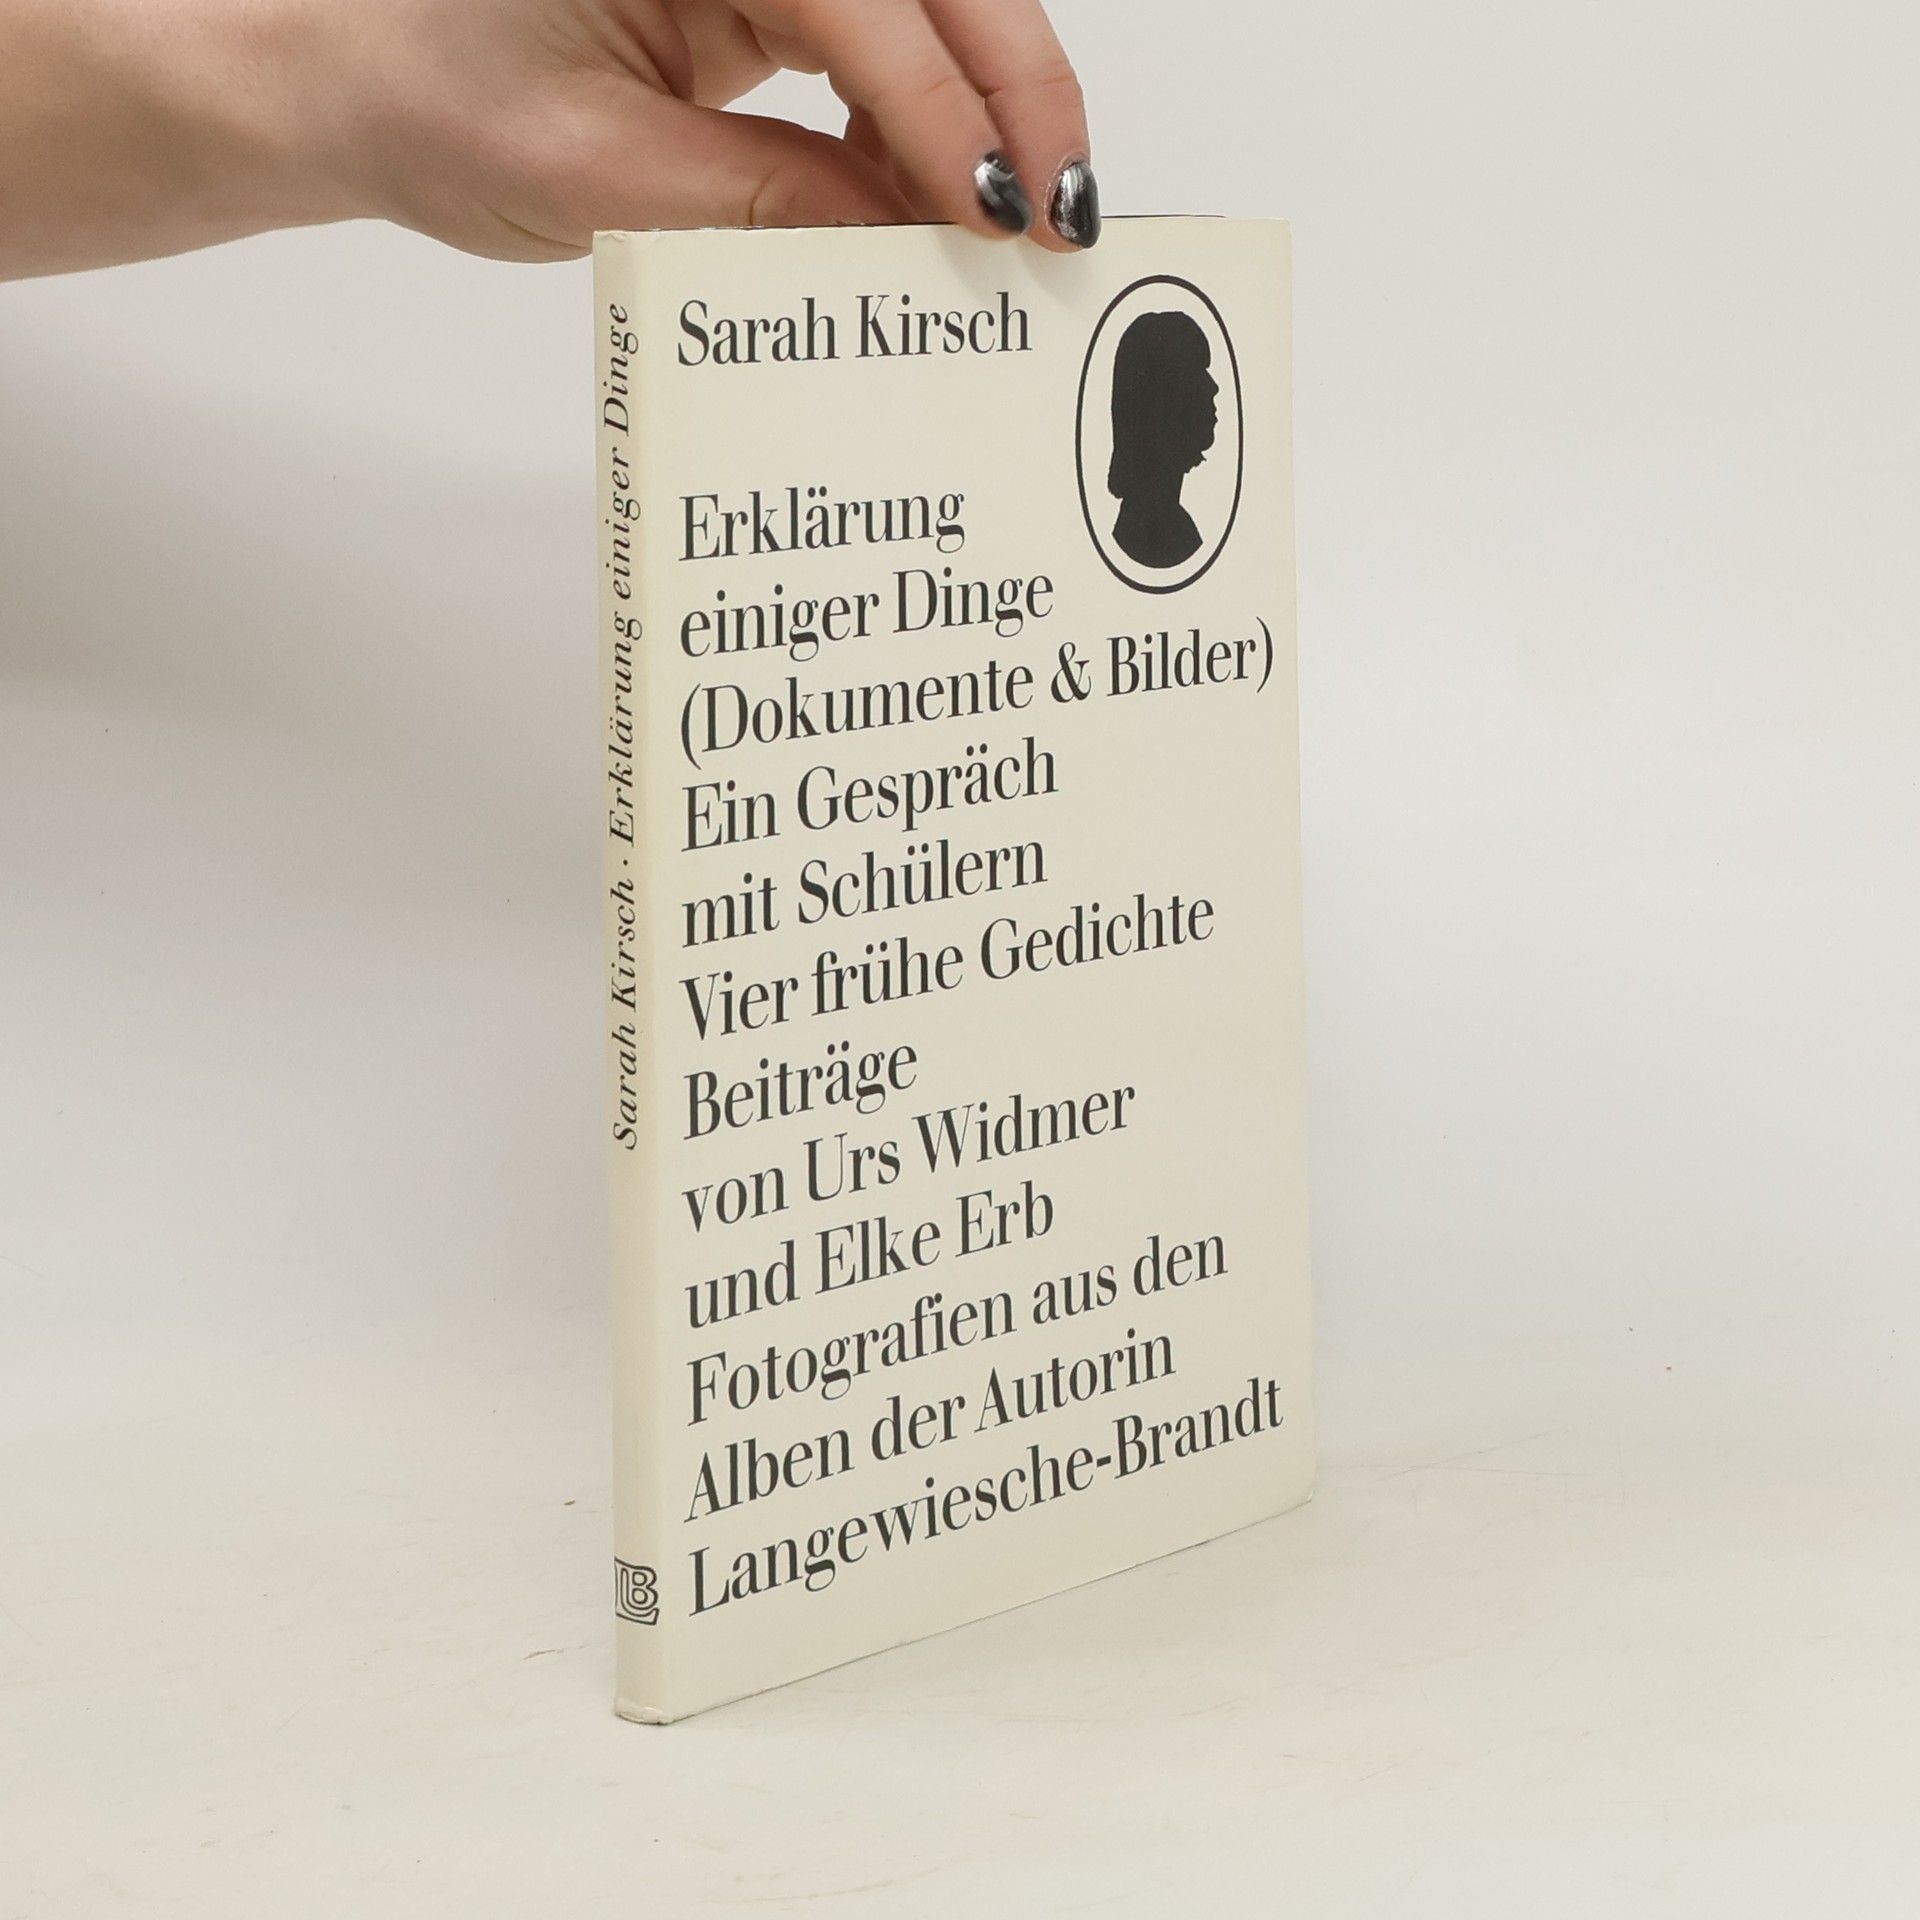 Sarah Kirsch
Erklärung
einiger Dinge
(Dokumente & Bilder)
Ein Gespräch
mit Schülern
Vier frühe Gedichte
Beiträge
von Urs Widmer
und Elke Erb
Fotografien aus den
Alben der Autorin
Langewiesche-Brandt
Sarah Kirsch · Erklärung einiger Dinge
LB